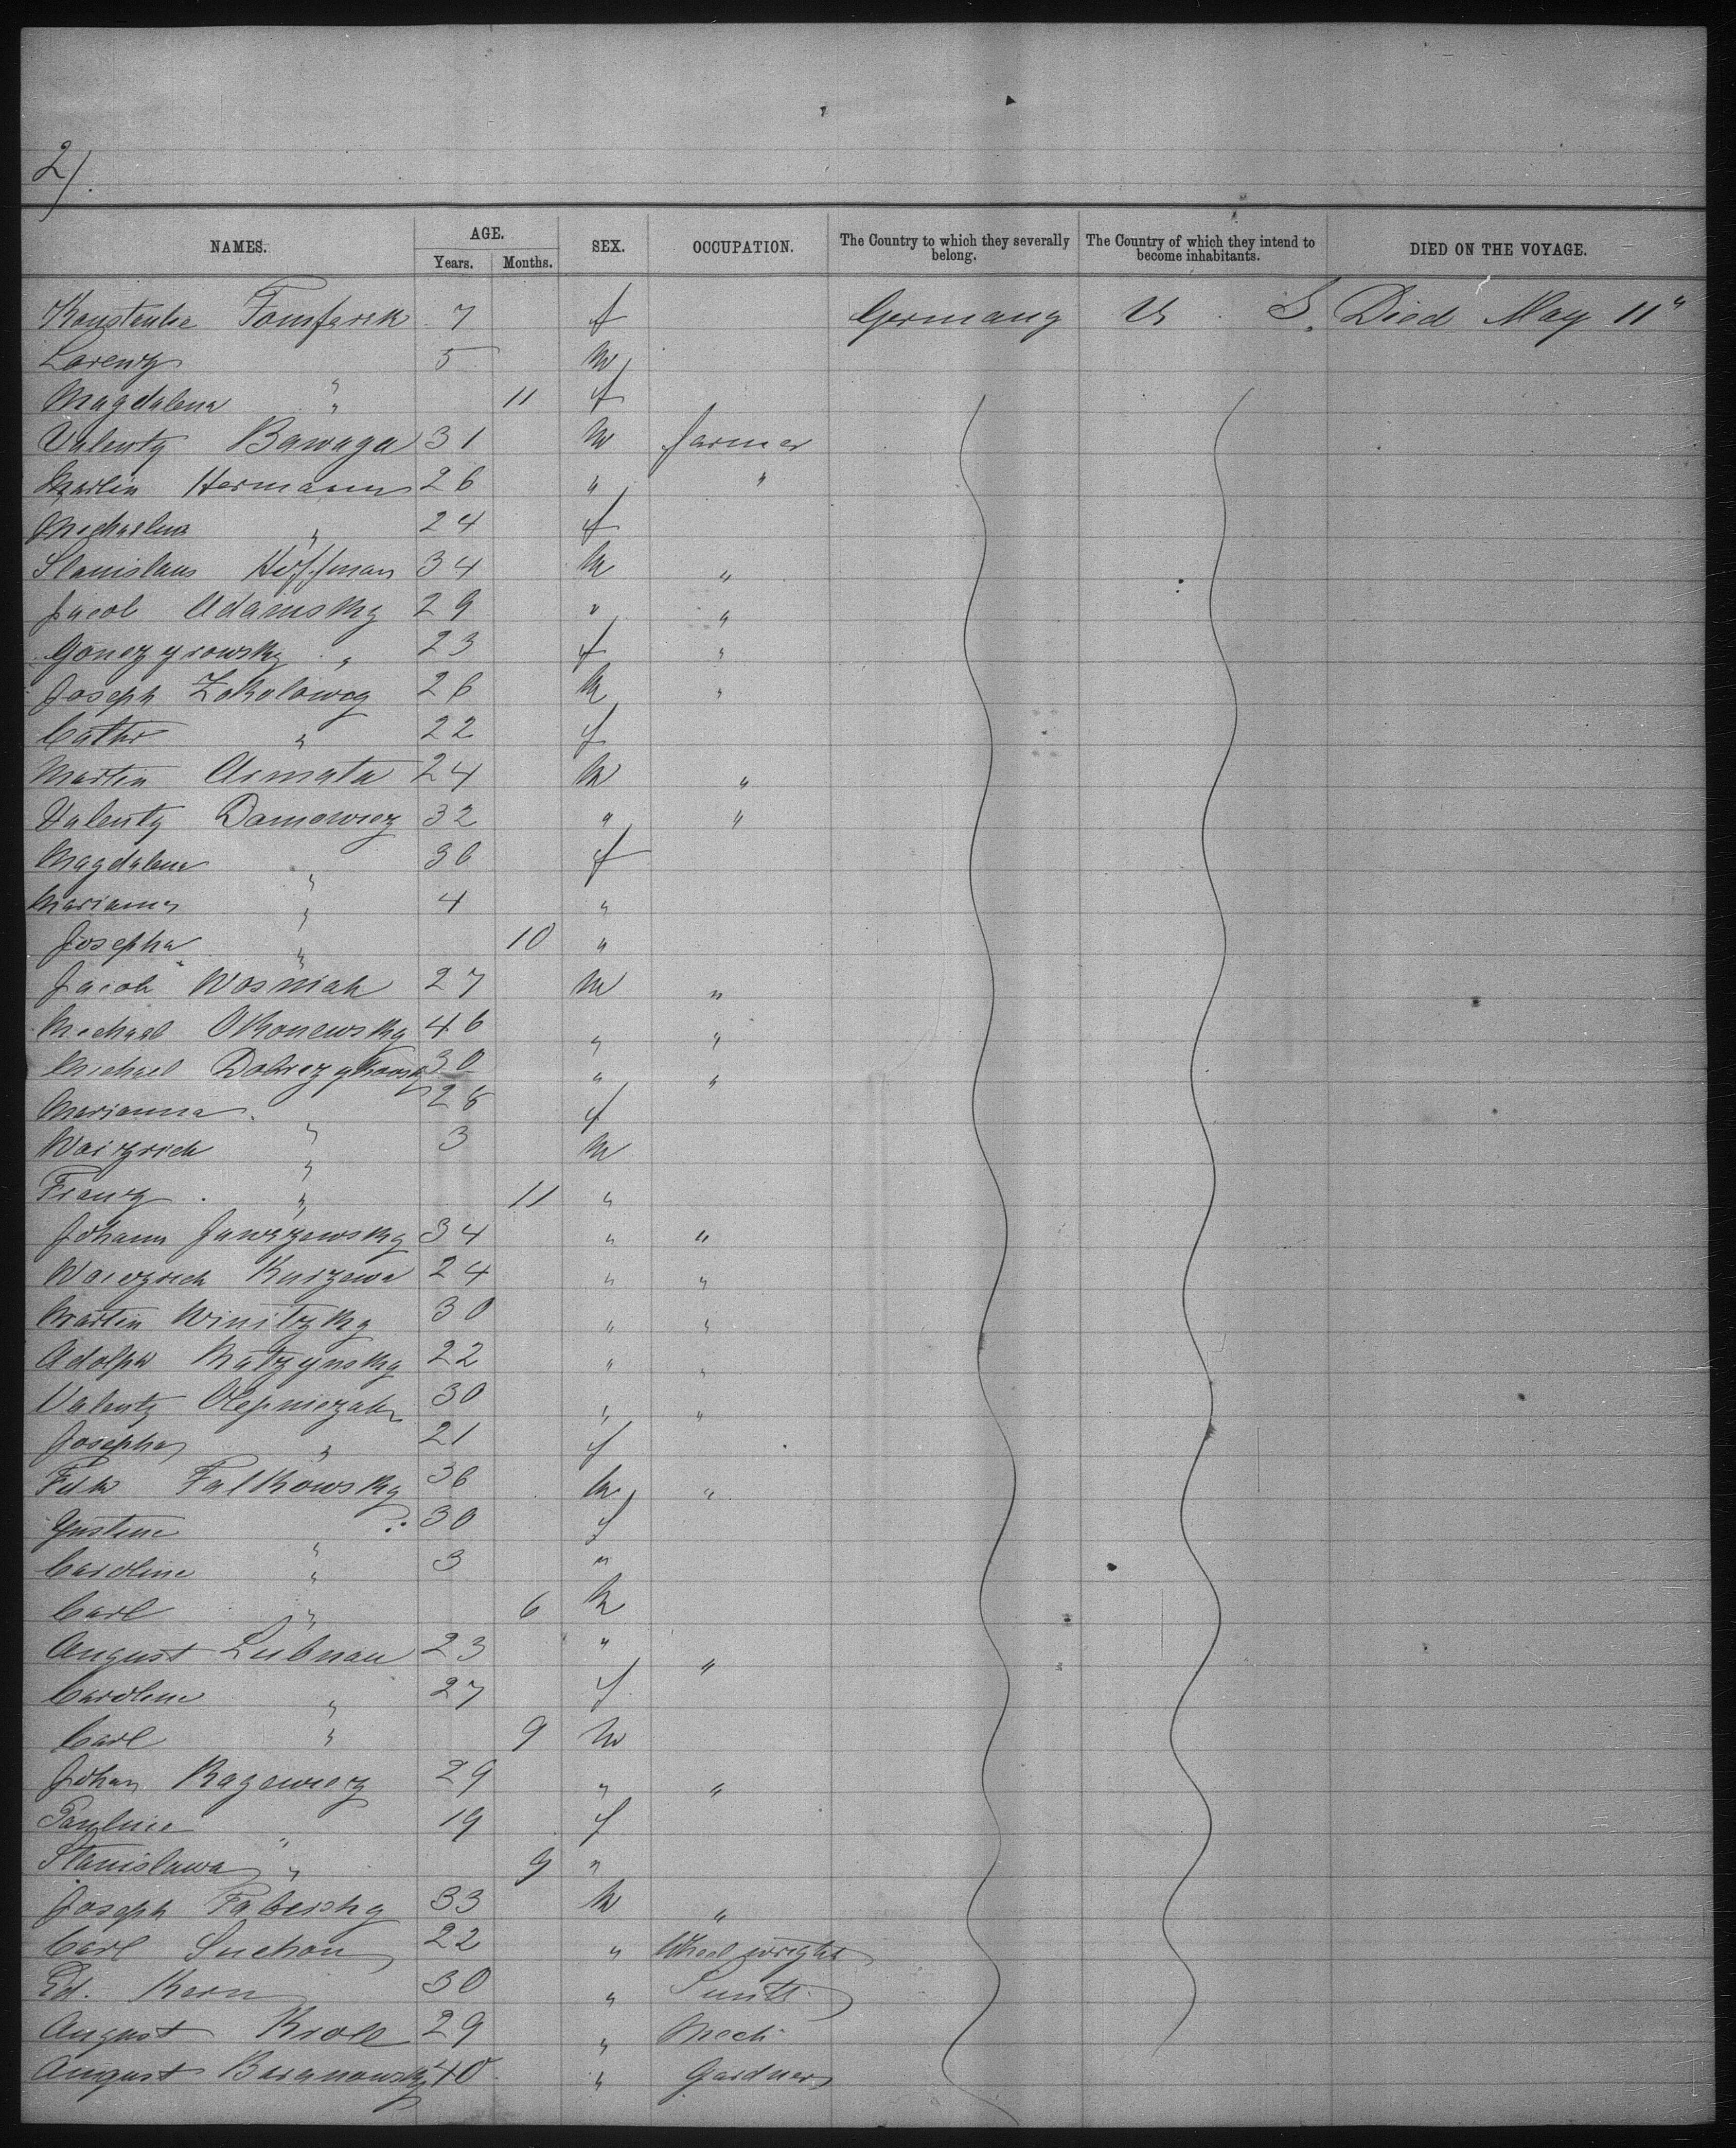 2).
NAMES. AGE. SEX. OCCUPATION. The Country to which they severally belong. The Country of which they intend to become inhabitants. DIED ON THE VOYAGE.
Years. Months.
7 f Germany U. S. Died May 11"
Lorenz " 5 m
Magdalena " 11 f
Valenty Bawaga 31 m farmer
Martin Hermann 26 " "
Michaelina " 24 f
Stanislaus Hoffman 34 m "
Jacob Adamsky 29 " "
" 23 f "
Joseph 26 m "
Cathr " 22 f
Martin Armata 24 m "
Valenty Damowicz 32 " "
Magdalena " 30 f
Marianna " 4 "
Josepha " 10 "
Jacob Wosniak 27 m "
Michael Okonewsky 46 " "
Michael 30 " "
Marianna " f
" 3 m
Franz " 11 "
Johann 34 " "
24 " "
Martin Winitzky 30 " "
Adolph Katzynsky 22 " "
Valenty 30 " "
Josepha " 21 f
Falkowsky 36 m "
Justine " 30 f
Caroline " 3 "
Carl " 6 m
August Lubnau 23 " "
Caroline " 27 f
Carl " 9 m
Johan 29 " "
Pauline " 19 f
Stanislawa " 9 "
Joseph Fabersky 33 m "
Carl Suchon 22 " Wheelwright
Ed. Kern 30 "
August Kroll 29 " Mech
August Baranowsky 40 " Gardner